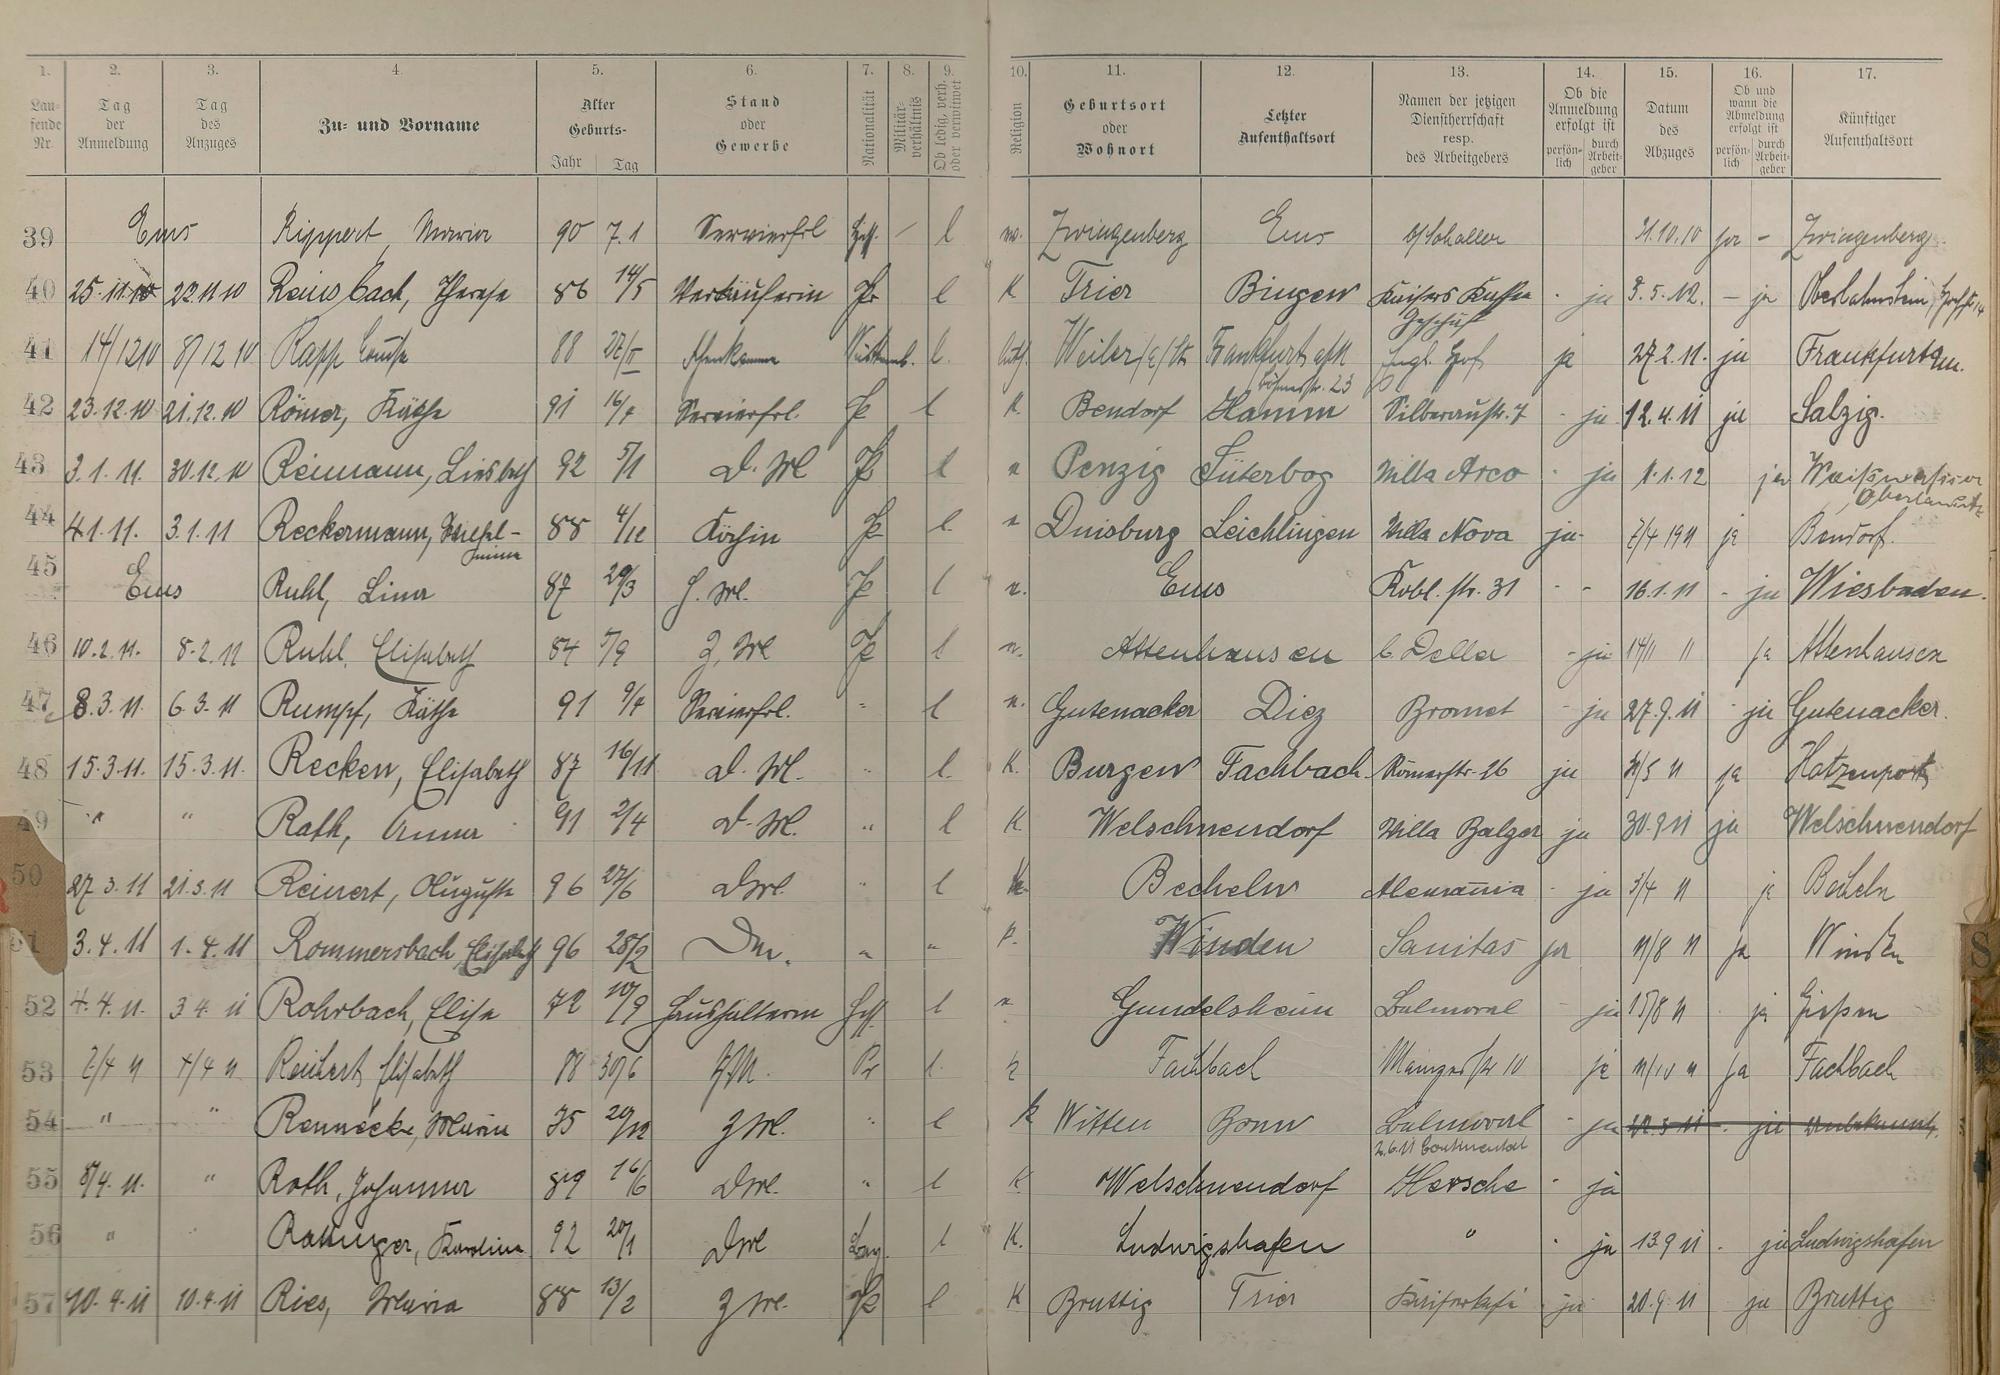 1. 2. 3. 4. 5. 6. 7. 8. 9. 10. 11. 12. 13. 14. 15. 16. 17.
Laufende Nr.
Tag der Anmeldung
Tag des Anzuges
Zu= und Vorname
Alter Geburts- Jahr Tag
Stand oder Gewerbe
Nationalität
Militärverhältnis
Ob ledig, verh. oder verwitwet
Religion
Geburtsort oder Wohnort
Letzter Aufenthaltsort
Namen der jetzigen Dienstherrschaft resp. des Arbeitgebers
Ob die Anmeldung erfolgt ist persönlich durch Arbeitgeber
Datum des Abzuges
Ob und wann die Abmeldung erfolgt ist persönlich durch Arbeitgeber
Künftiger Aufenthaltsort
39 Ems Rippert, Maria 90 7.1 Servierfrl Hess. – l Zwingenberg Ems Schaller 31.10.10 ja – Zwingenberg
40 25.11.10 22.11.10 Reinsbach, Therese 86 14/5 Verkäuferin Pr l K Trier Bingen Kaisers Kaffee Geschäft - ja 3.5.12. – ja Oberlahnstein
41 14/12 10 8/12 10 Rapp Louise 88 27/II Württemb. l. Weiler Frankfurt a/M Engl. Hof ja 27.2.11. ja Frankfurt a/m.
42 23.12.10 21.12.10 Römer, Käthe 91 16/4 Servierfrl. Pr l K. Bendorf Hamm Silberaustr. 7 - ja 12.4.11 ja Salzig.
43 3.1.11. 30.12.10 Reimann, Liesbeth 92 5/1 D. Md Pr l Penzig Jüterbog Villa Arco - ja 1.1.12 ja Weißwasser Oberlausitz
44 4.1.11. 3.1.11 Reckermann, Wilhelmina 88 4/12 Köchin Pr l. Duisburg Leichlingen Villa Nova ja - 7/4 1911 ja Bendorf.
45 Ems Ruhl, Lina 87 29/3 H. Md. Pr l Ems Kobl. str. 31 - - 16.1.11 - ja Wiesbaden.
46 10.2.11. 8.2.11 Ruhl, Elisabeth 84 5/9 Z. Md Pr l Attenhausen b. Della - ja 14/11 11 ja Attenhausen
47 8.3.11. 6.3.11 Rumpf, Käthe 91 9/4 Servierfrl. " l Gutenacker Diez Bromet - ja 27.9.11 - ja Gutenacker.
48 15.3.11. 15.3.11. Recken, Elisabeth 87 16/11 D. Md. " l. K. Burgen Fachbach Römerstr. 26 ja 31/5 11 ja Hatzenport
49 " " Rath, Anna 91 2/4 D. Md. " l K Welschneudorf Villa Balzer ja 30.9 11 ja Welschneudorf
50 27.3.11 21.3.11 Reinert, Auguste 96 27/6 D Md " l Becheln Alemannia - ja 3/4 11 ja Becheln
51 3.4.11 1.4.11 Rommersbach, Elisabeth 96 28/2 Dm. " " Winden Sanitas ja 11/8 11 ja Winden
52 4.4.11. 3 4. 11 Rohrbach, Elise 72 10/9 Haushälterin Hess l Gundelsheim Balmoral - ja 15/8 11 - ja Gießen
53 7/4 11 4/4 11 Reichert, Elisabeth 88 30/6 Z.M. Pr l. Fachbach Mainzerstr 10 ja 11/10 11 ja Fachbach
54 " " Rennecke, Maria 75 20/12 Z Md. " l k Witten Bonn Balmoral - ja 22.5 11 - ja unbekannt.
2.6.11 Continental
55 8/4. 11. " Roth, Johanna 89 16/6 D Md. " l K Welschneudorf Hersche - ja
56 " " Karolina 92 20/1 D Md Bay. l K. Ludwigshafen " - ja 13 9 11 - ja Ludwigshafen
57 10.4.11 10.4.11 Ries, Maria 88 13/2 Z Md. Pr l K Bruttig Trier - ja 20.9.11 ja Bruttig